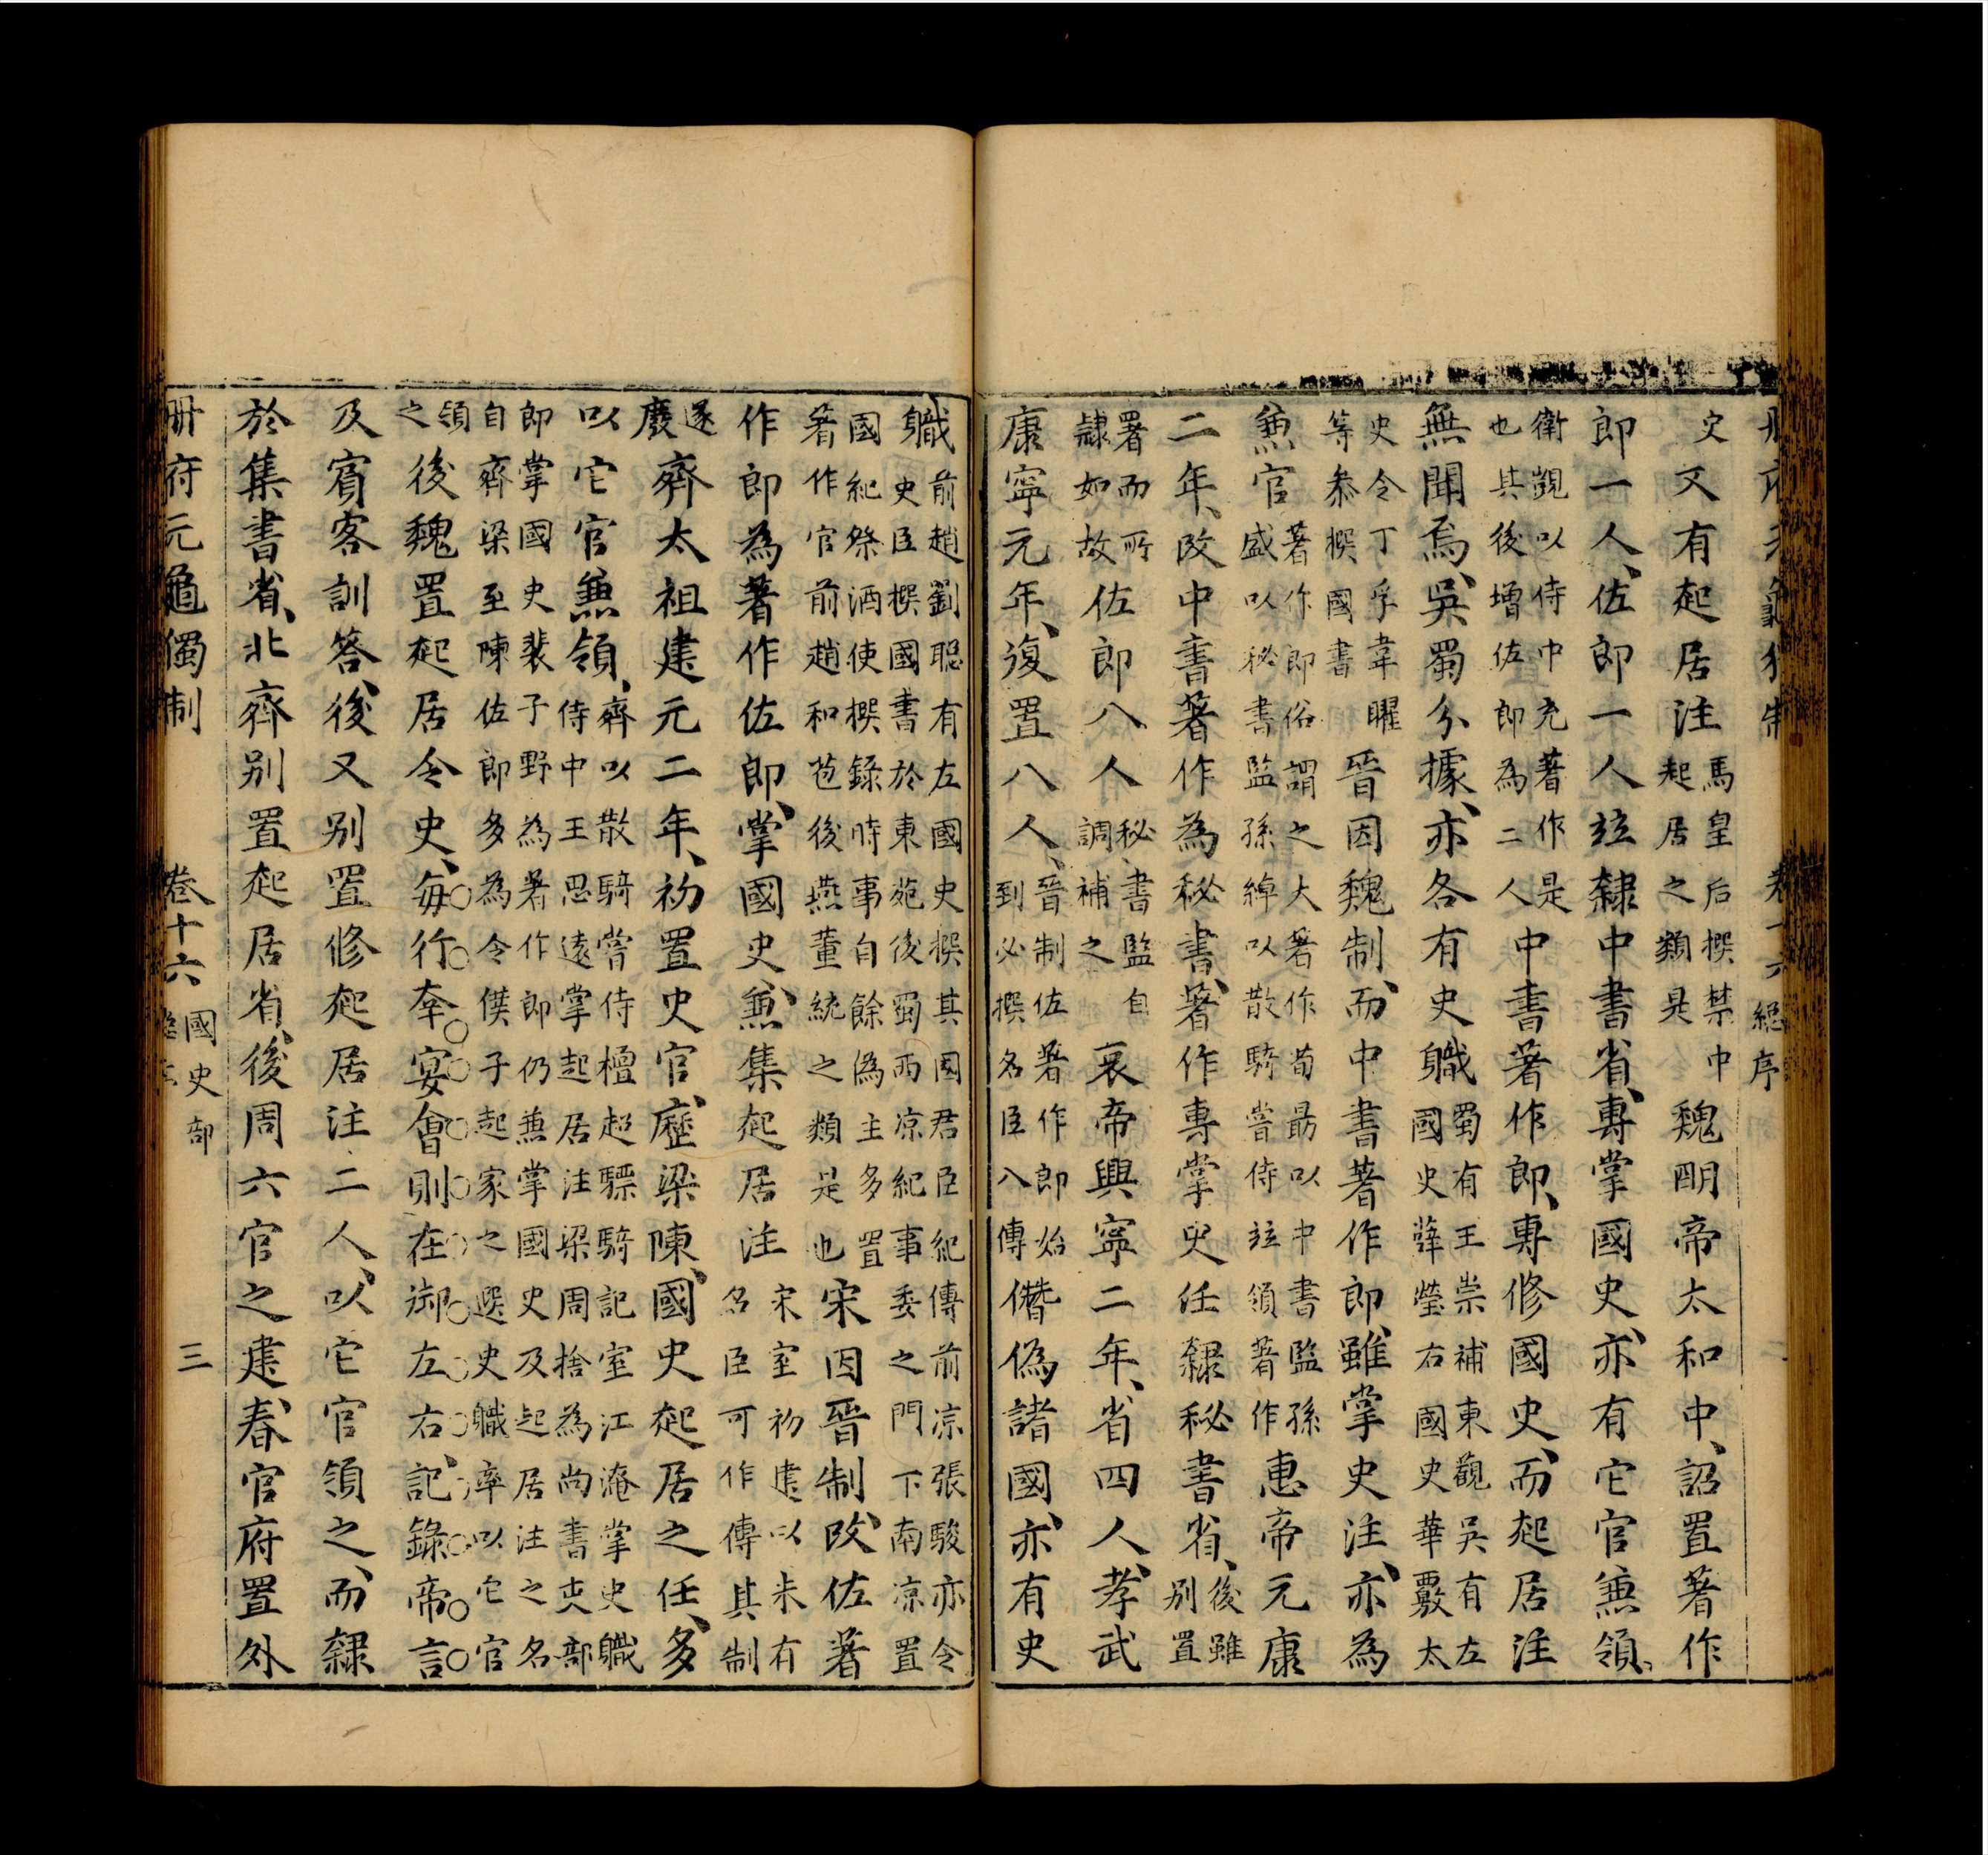 史又有起居注馬皇后撰禁中起居之類是魏明帝太和中詔置著作
郎一人佐郎一人竝隸中書省專掌國史亦有它官兼領
衛覬以侍中充著作是也其後增佐郎為二人中書著作郎專修國史而起居注
無聞焉吳蜀分據亦各有史職蜀有王崇補東觀吳有左國史薛瑩右國史華覈太
史令丁孚韋曜等叅撰國書晉因魏制而中書著作郎雖掌史注亦為
兼官著作郎俗謂之大著作荀勗以中書監孫盛以秘書監孫綽以散騎嘗侍竝領著作惠帝元康
二年改中書著作為秘書著作專掌史任隸秘書省後雖別置
署而所隸如故佐郎八人秘書監自調補之哀帝興寧二年省四人孝武
康寧元年復置八人晉制佐著作郎始到必撰名臣八傳僭偽諸國亦有史
職前趙劉聰有左國史撰其國君臣紀傳前凉張駿亦令史臣撰國書於東苑後蜀西凉紀事委之門下南凉置
國紀祭酒使撰錄時事自餘偽主多置著作官前趙和苞後燕董統之類是也宋因晉制改佐著
作郎為著作佐郎掌國史兼集起居注宋室初建以未有名臣可作傳其制
遂廢齊太祖建元二年初置史官歷梁陳國史起居之任多
以它官兼領齊以散騎嘗侍檀超驃騎記室江淹掌史職侍中王思遠掌起居注梁周捨為尚書吏部
郎掌國史裴子野為著作郎仍兼掌國史及起居注之名自齊梁至陳佐郎多為令僕子起家之選史職率以它官
領之後魏置起居令史每行在宴會則在御左右記錄帝言
及賓客訓答後又別置修起居注二人以它官領之而隸
於集書省北齊別置起居省後周六官之建春官府置外
冊府元龜獨制 卷十六 國史部 三